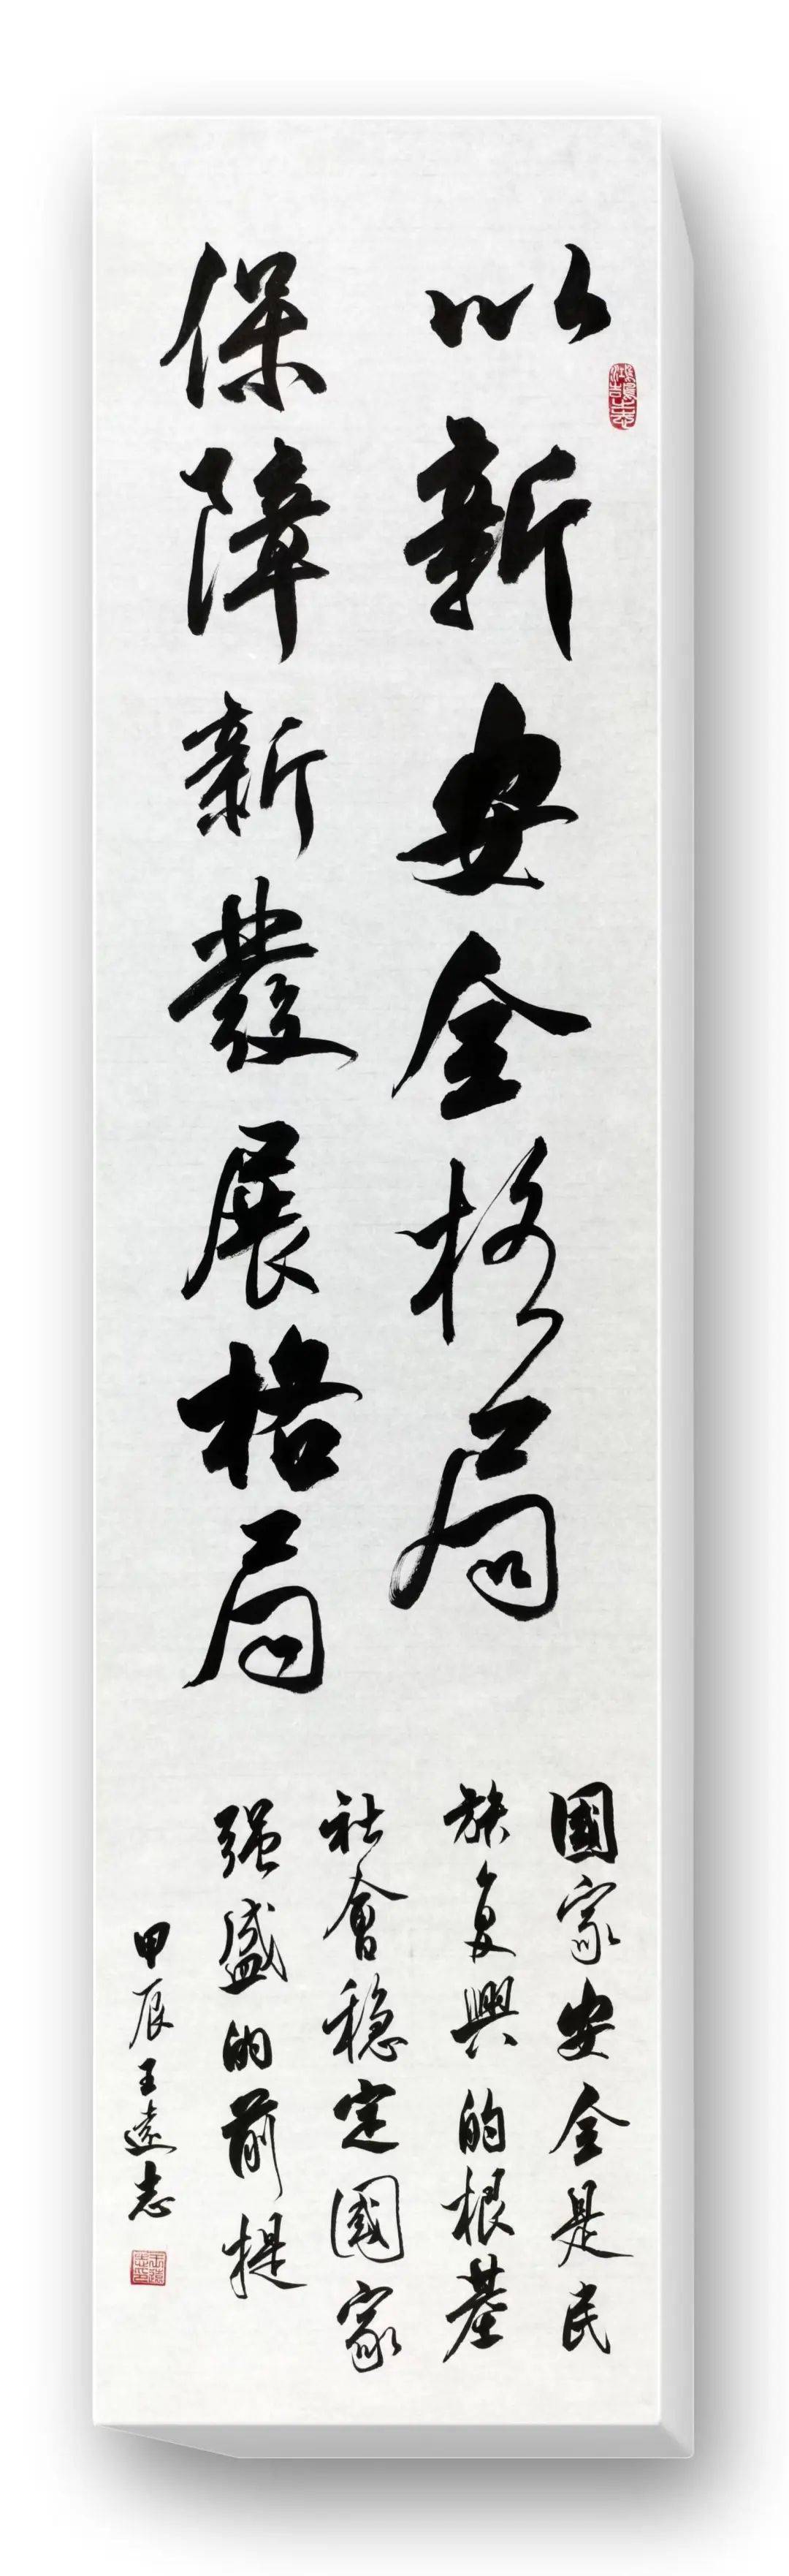 以新安全格局
保障新發展格局
國家安全是民
族复興的根基
社會穩定國家
强盛的前提
甲辰王遠志